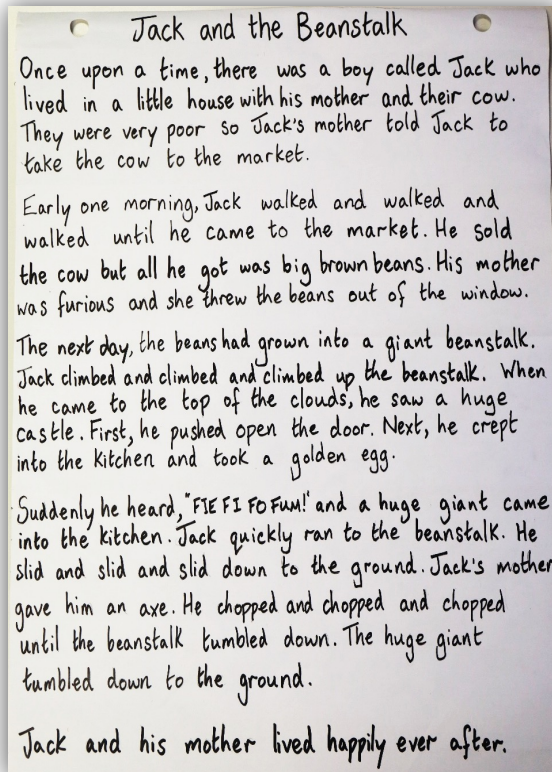 Jack and the Beanstalk
Once upon a time, there was a boy called Jack who
lived in a little house with his mother and their cow.
They were very poor so Jack's mother told Jack to
take the cow to the market.
Early one morning, Jack walked and walked and
walked until he came to the market. He sold
the cow but all he got was big brown beans. His mother
was furious and she threw the beans out of the window.
The next day, the beans had grown into a giant beanstalk.
Jack climbed and climbed and climbed up the beanstalk. When
he came to the top of the clouds, he saw a huge
castle. First, he pushed open the door. Next, he crept
into the kitchen and took a golden egg.
Suddenly he heard, "FIE FI FO FUM!" and a huge giant came
into the kitchen. Jack quickly ran to the beanstalk. He
slid and slid and slid down to the ground. Jack's mother
gave him an axe. He chopped and chopped and chopped
until the beanstalk tumbled down. The huge giant
tumbled down to the ground.
Jack and his mother lived happily ever after.